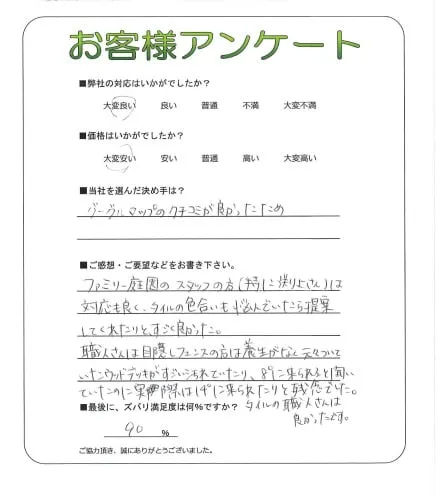 お客様アンケート
■弊社の対応はいかがでしたか？
大変良い 良い 普通 不満 大変不満
■価格はいかがでしたか？
大変安い 安い 普通 高い 大変高い
■当社を選んだ決め手は？
グーグルマップのクチコミが良かったため
■ご感想・ご要望などをお書き下さい。
ファミリー庭園のスタッフの方(特に 上さん)は
対応も良く、タイルの色合いも悩んでいたら提案
してくれたりと、すごく良かった。
職人さんは目隠しフェンスの方は養生がなく元々ついて
いたウッドデッキがすごい られていたり、8°に来られると聞い
ていたのに実際は に来られたりと残念でした。
■最後に、ズバリ満足度は何％ですか？ タイルの職人さんは
良かったです。
90 %
ご協力頂き、誠にありがとうございました。